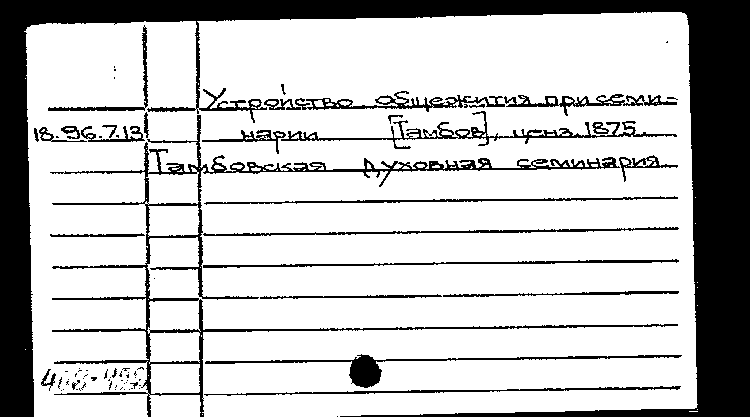 Устройство общежития при семи-
18.96.7.13 нарии [Тамбов], ценз. 1875.
Тамбовская духовная семинария